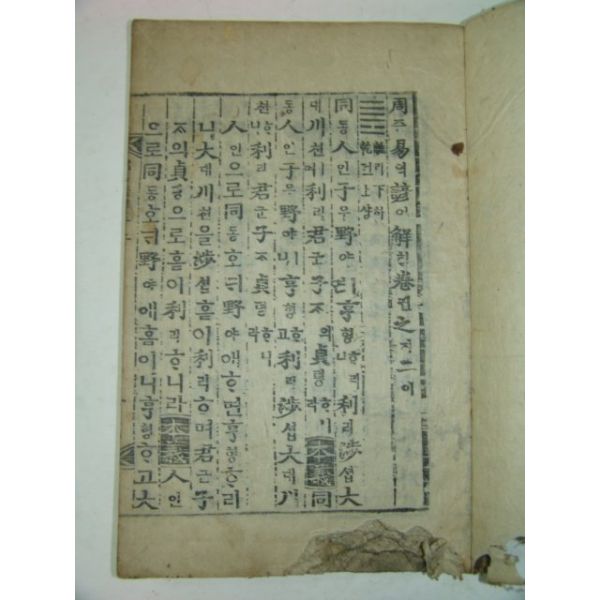 周쥬易역諺언解ᄒᆡ卷권之지二이
離리下하乾건上샹
同동人인于우野야ㅣ면亨형ᄒᆞ리니利리涉셥大
대川쳔이며利리君군子ᄌᆞ의貞뎡ᄒᆞ니라本義同
동人인于우野야ㅣ니亨형ᄒᆞ고利리涉셥大대川
쳔ᄒᆞ니利리君군子ᄌᆞ貞뎡ᄒᆞ니라
人인으로同동호ᄃᆡ野야애ᄒᆞ면亨형ᄒᆞ리
니大대川쳔을涉셥홈이利리ᄒᆞ며君군子
ᄌᆞ의貞뎡으로홈이利리ᄒᆞ니라本義人인
으로同동호ᄃᆡ野야애홈이니亨형ᄒᆞ고大